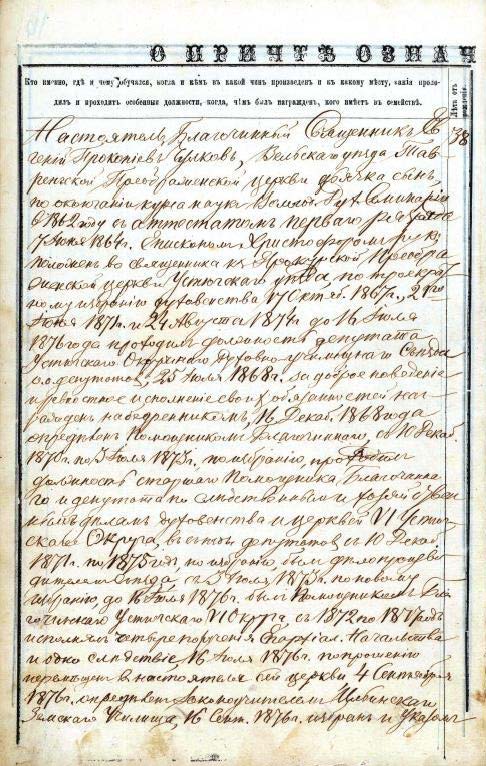 О ПРИЧТѢ ОЗНАЧ
Кто именно, гдѣ и чему обучался, когда и кѣмъ въ какой чинъ произведенъ и къ какому мѣсту, какія прохо-
дилъ и проходитъ особенныя должности, когда, чѣмъ былъ награжденъ, кого имѣетъ въ семействѣ.
Лѣта отъ рожденія.
38
Настоятель, Благочинный Священникъ Ев-
геній Прокопіевъ Сулковъ, Вельскаго уѣзда Тав-
ренгской Преображенской церкви дьячка сынъ,
по окончаніи курса наукъ Волог. Дух. Семинаріи
въ 1862 году съ аттестатомъ перваго разряда
7 Іюня 1864 г. Епископомъ Христофоромъ руко-
положенъ во священника къ Преобра-
женской церкви Устюгскаго уѣзда, по троекрат-
ному избранію духовенства 17 Октяб. 1867 г., 2
Іюня 1871 г. и 24 Августа 1874 г. до 16 Іюля
1876 года проходилъ должность депутата
Устюгскаго Окружнаго духовно-училищнаго Съѣзда
о.о. депутатовъ, 25 Іюля 1868 г. за доброе поведеніе
и исполненіе своихъ обязанностей наг-
ражденъ набедренникомъ, 16 Декаб. 1868 года
опредѣленъ Помощникомъ Благочиннаго, съ 10 Декаб.
1870 г. по 5 Іюля 1873 г., по избранію, проходилъ
должность старшаго Помощника Благочинна-
го и депутата по слѣдственнымъ и
дѣламъ духовенства и церквей VI Устюг-
скаго Округа, съ 10 Декаб.
1871 г. по 1875 годъ, по избранію, былъ дѣлопроизво-
дителемъ Съѣзда, съ 5 Іюля 1873 г. по новому
избранію, до 16 Іюля 1876 г. былъ Помощникомъ Бла-
гочиннаго Устюгскаго VI Округа, съ 1872 по 1877 годъ
исполнялъ четыре порученія Епархіал. Начальства
и одно слѣдствіе, 16 Іюля 1876 г. по прошенію
перемѣщенъ въ настоятеля сей церкви, 4 Сентября
1876 г. опредѣленъ Законоучителемъ
Земскаго Училища, 16 Сент. 1876 г. избранъ и Указомъ